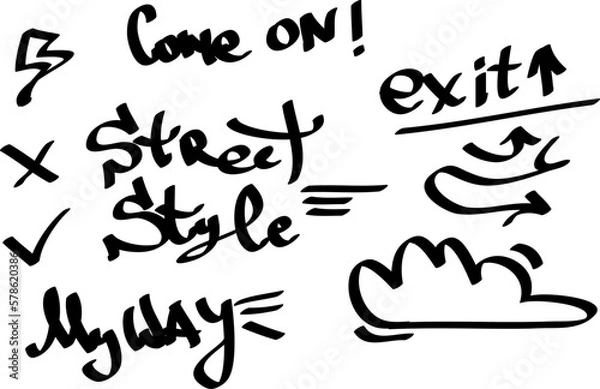 Come ON!
exit
Street
Style
My WAY
578620386
Adobe Stock